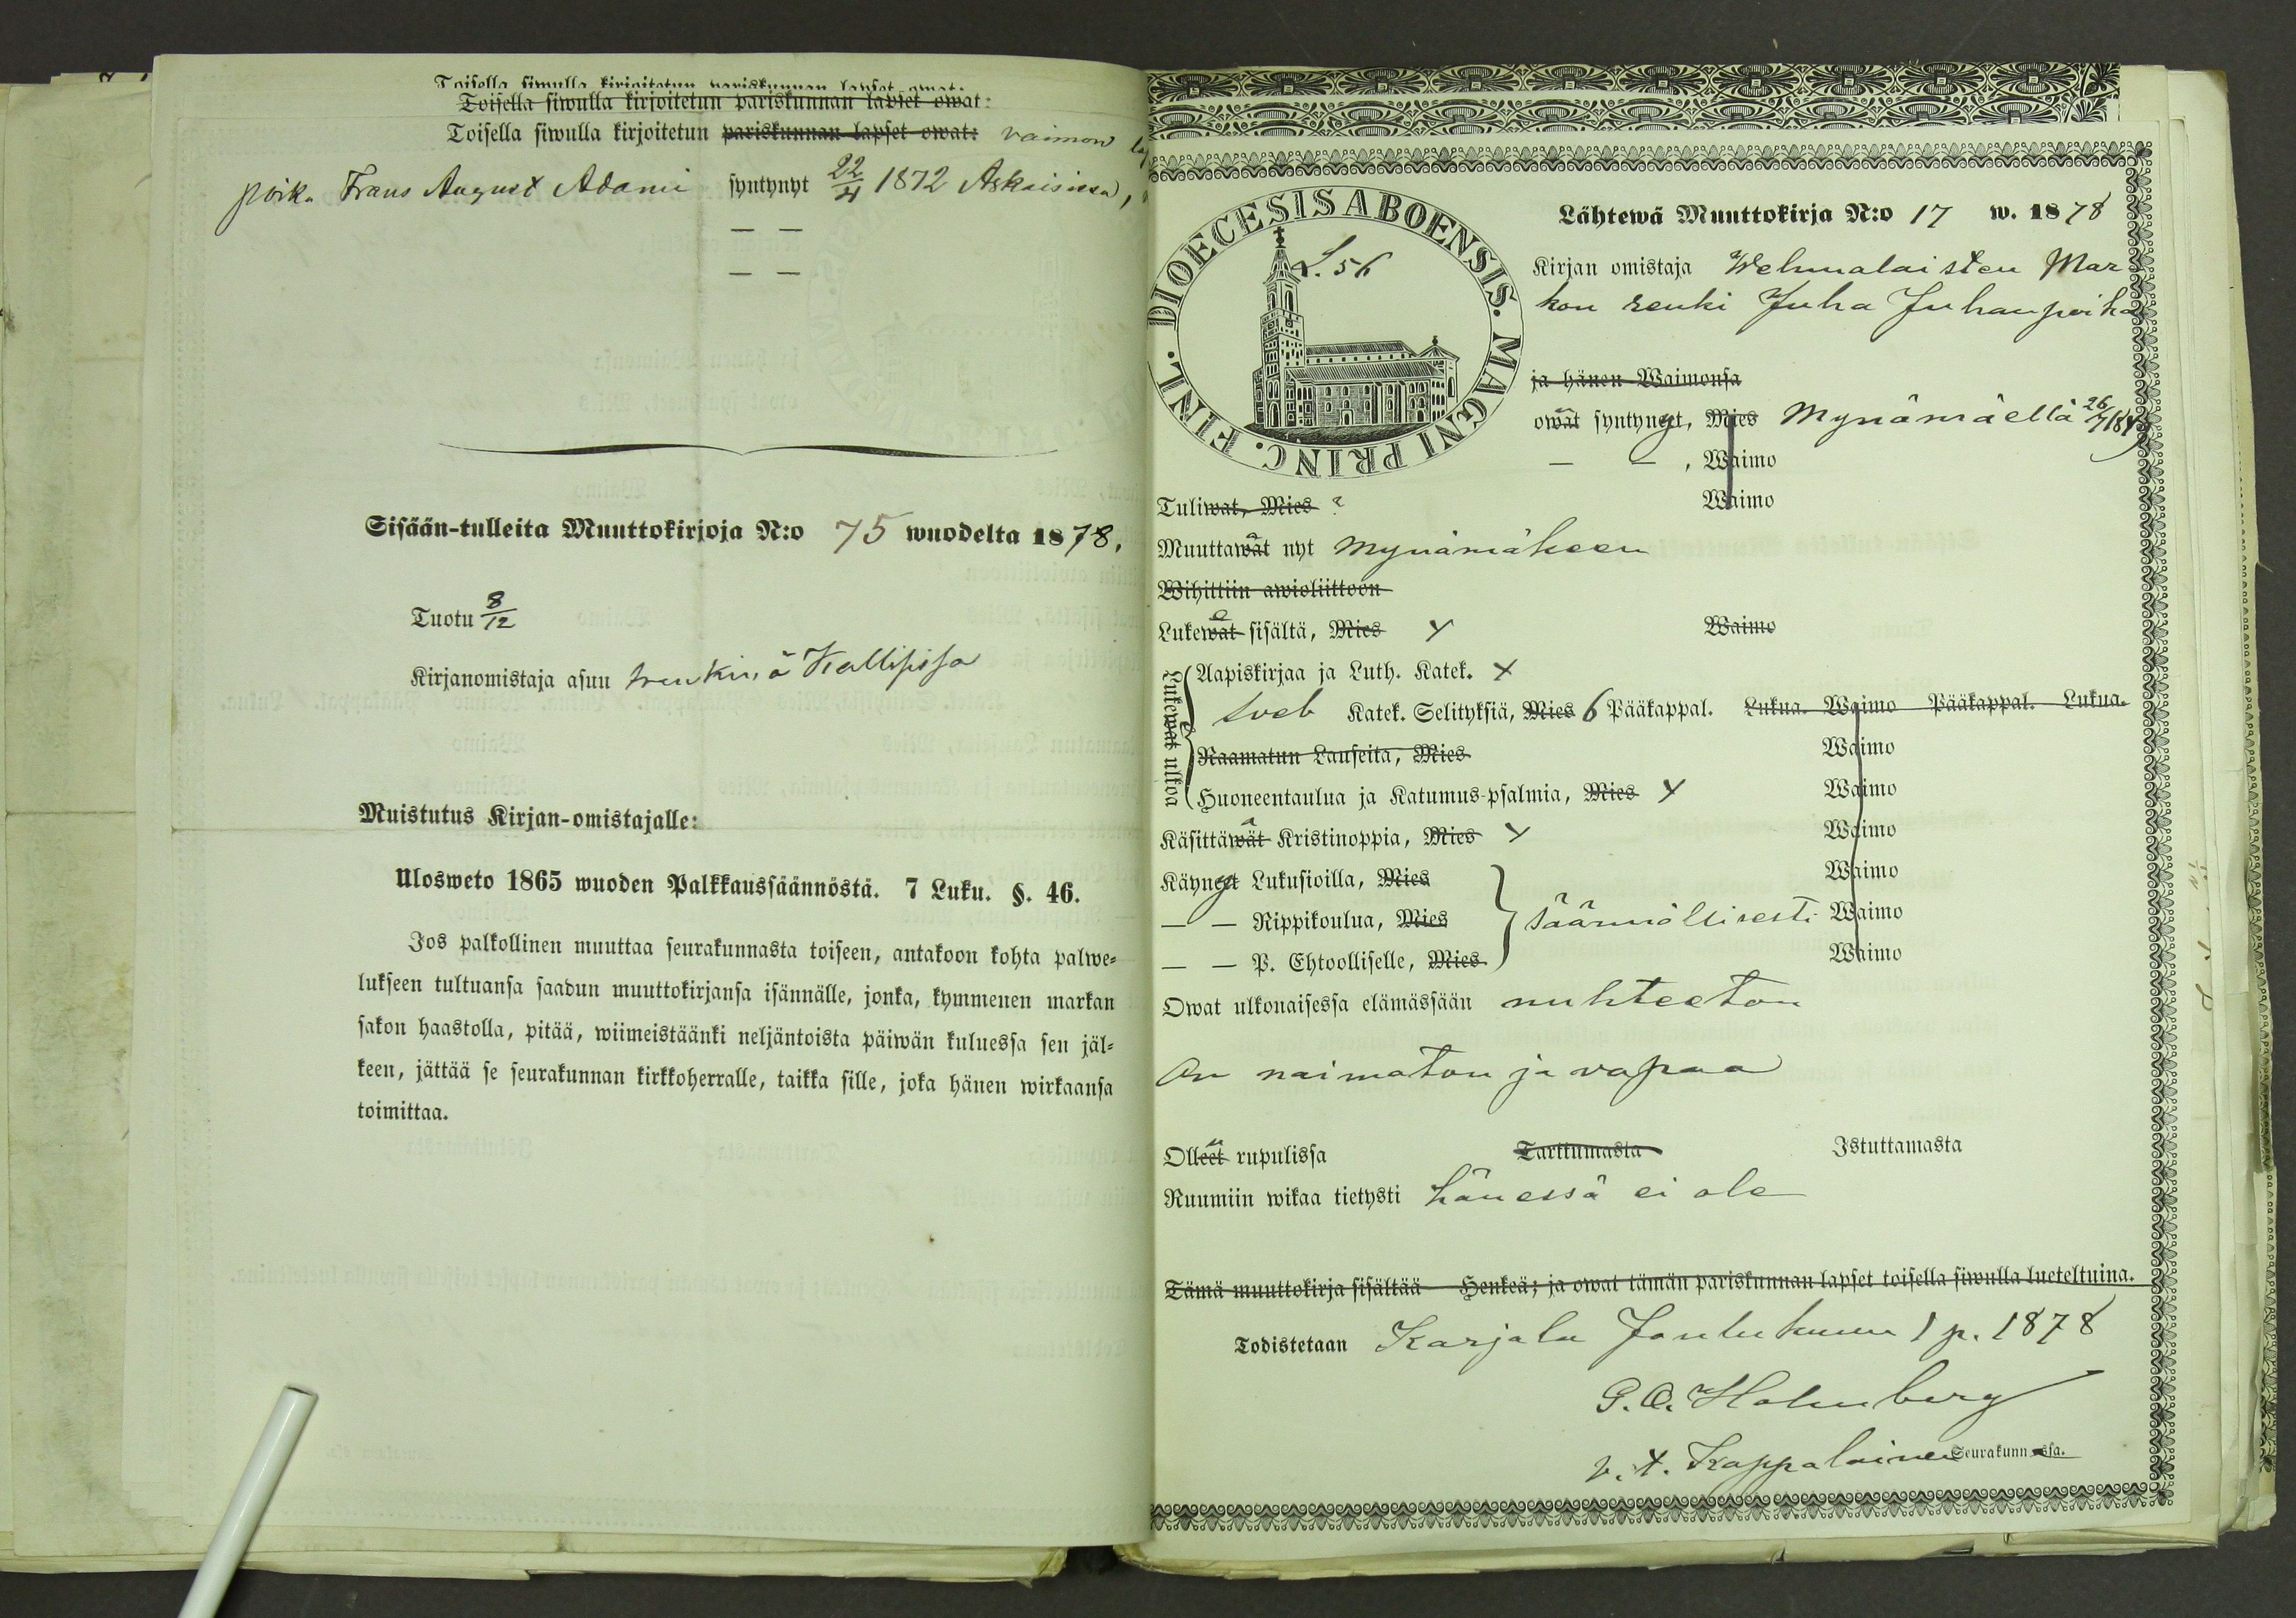 Toisella siwulla kirjoitetun pariskunnan lapset owat:
Toisella siwulla kirjoitetun pariskunnan lapset owat:
Toisella siwulla kirjoitetun pariskunnan lapset owat: vaimon
poika Frans August Adami syntynyt 22/4 1872 Askaisissa,
— —
— —
Sisään-tulleita Muuttokirjoja N:o 75 wuodelta 1878.
Tuotu 8/12
Kirjanomistaja asuu trenkinä
Muistutus Kirjan-omistajalle:
Ulosweto 1865 wuoden Palkkaussäännöstä. 7 Luku. §. 46.
Jos palkollinen muuttaa seurakunnasta toiseen, antakoon kohta palwe-
lukseen tultuansa saadun muuttokirjansa isännälle, jonka, kymmenen markan
sakon haastolla, pitää, wiimeistäänki neljäntoista päiwän kuluessa sen jäl-
keen, jättää se seurakunnan kirkkoherralle, taikka sille, joka hänen wirkaansa
toimittaa.
DIOECESIS ABOENSIS. MAGNI PRINC. FINL.
L. 56
Lähtewä Muuttokirja N:o 17 w. 1878
Kirjan omistaja Wehmalaisten Mar
kon renki Juha Juhanpoika
ja hänen Waimonsa
owat syntynyt, Mies Mynämäellä 26/7
— — , Waimo
Tuliwat, Mies ? Waimo
Muuttawat nyt Mynämäkeen
Wihittiin awioliittoon
Lukewat sisältä, Mies x Waimo
Lukewat ulkoa
Aapiskirjaa ja Luth. Katek. x
sveb Katek. Selityksiä, Mies 6 Pääkappal. Lukua. Waimo Pääkappal. Lukua.
Raamatun Lauseita, Mies Waimo
Huoneentaulua ja Katumus-psalmia, Mies x Waimo
Käsittäwät Kristinoppia, Mies x Waimo
Käynyt Lukusioilla, Mies Waimo
— — Rippikoulua, Mies säännöllisesti Waimo
— — P. Ehtoolliselle, Mies Waimo
Owat ulkonaisessa elämässään nuhteeton
On naimaton ja vapaa
Olleet rupulissa Tarttumasta Istuttamasta
Ruumiin wikaa tietysti hänessä ei ole
Tämä muuttokirja sisältää Henkeä; ja owat tämän pariskunnan lapset toisella siwulla lueteltuina.
Todistetaan Karjala Joulukuun 1 p. 1878
G. O. Holmberg
v. t. Kappalainen Seurakunnassa.